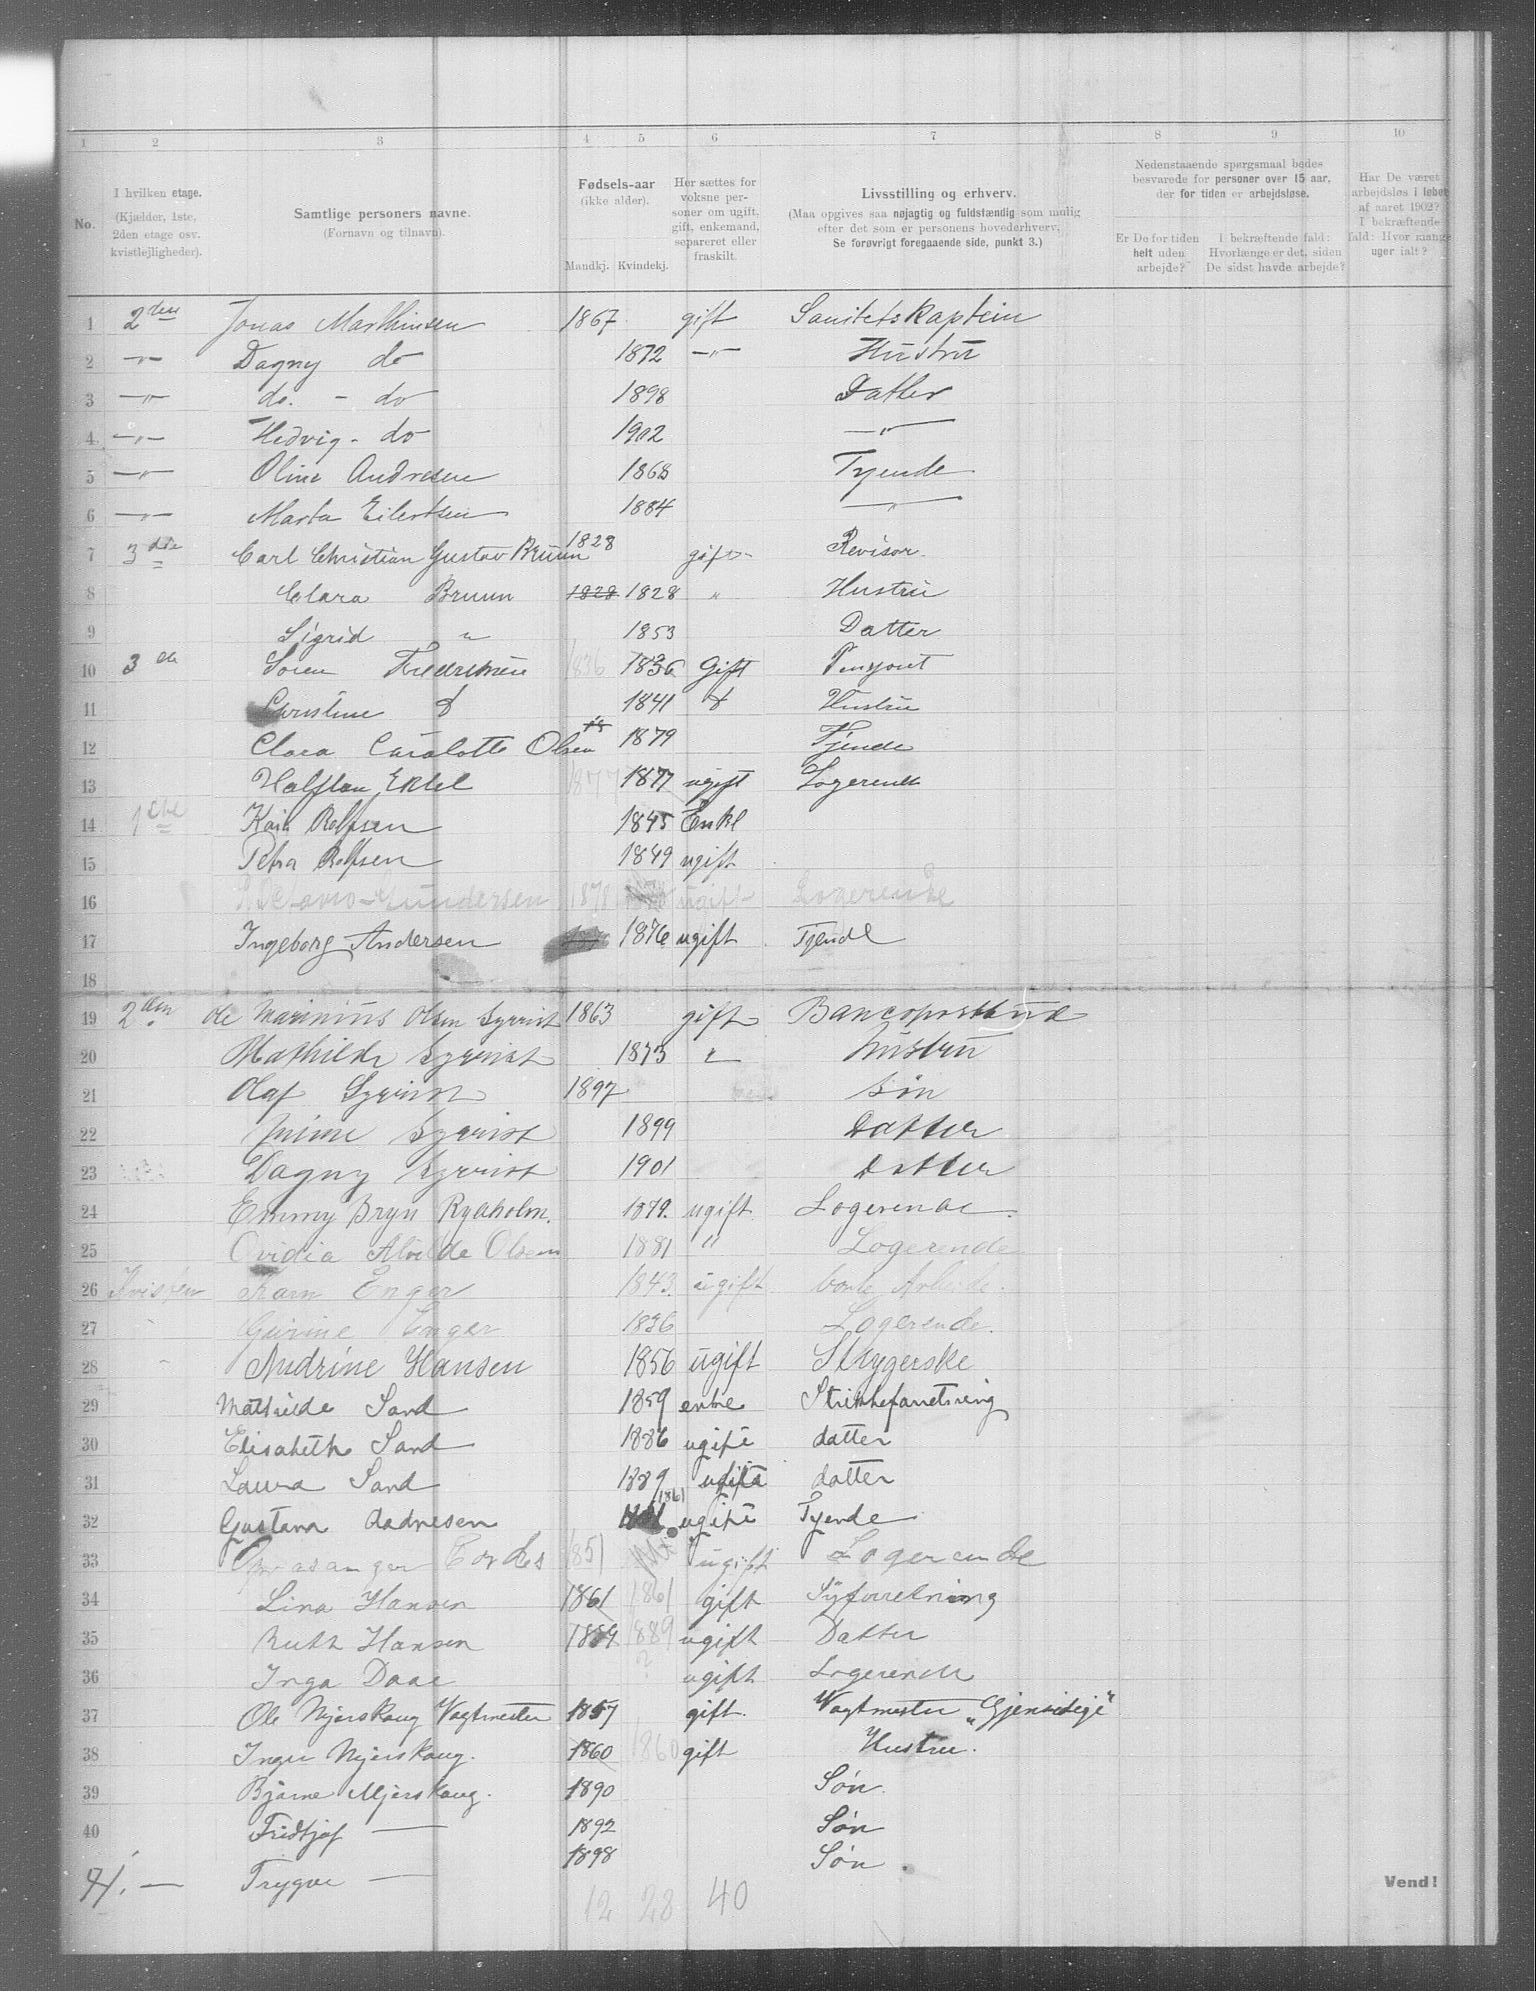 1 2 3 4 5 6 7 8 9 10
No.
I hvilken etage.
(Kjælder, 1ste,
2den etage osv.
kvistlejligheder).
Samtlige personers navne.
(Fornavn og tilnavn).
Fødsels-aar
(ikke alder).
Mandkj. Kvindekj.
Her sættes for
voksne per-
soner om ugift,
gift, enkemand,
separeret eller
fraskilt.
Livsstilling og erhverv.
(Maa opgives saa nøjagtig og fuldstændig som mulig
efter det som er personens hovederhverv.
Se forøvrigt foregaaende side, punkt 3.)
Nedenstaaende spørgsmaal bedes
besvarede for personer over 15 aar,
der for tiden er arbejdsløse.
Er De for tiden
helt uden
arbejde?
I bekræftende fald:
Hvorlænge er det, siden
De sidst havde arbejde?
Har De været
arbejdsløs i løbet
af aaret 1902?
I bekræftende
fald: Hvor mange
uger ialt?
1 2den Jonas Marthinsen 1867 gift Sanitetskaptein
2 —"— Dagny do 1872 —"— Hustru
3 —"— do. - do 1898 Datter
4 —"— Hedvig - do 1902 —"—
5 —"— Oline Andresen 1868 Tyende
6 —"— Marta Eilertsen 1884 —"—
7 3die Carl Christian Gustav Bruun 1828 gift Revisor.
8 Clara Bruun 1828 1828 " Hustru
9 Sigrid " 1853 Datter
10 3de Soren 1836 1836 Gift
11 Christine 1841 Hustru
12 Clara Carolotte Olsen 1879 Tjende
13 Halfdan 1877 1877 ugift Logerende
14 1ste Rolfsen 1845 Enkl
15 Petra Rolfsen 1849 ugift
16 Gundersen 1878 ugift Logerende
17 Ingeborg Andersen 1876 ugift Tjende
18
19 2den Ole Marinius Olsen Syvrist 1863 gift
20 Mathilde Syvrist 1873 " hustru
21 Olaf Syvrist 1897 Søn
22 Syvrist 1899 Datter
23 Dagny Syvrist 1901 Datter
24 Emmy Bryn Ryaholm. 1879. ugift Logerende.
25 Ovidia Alvilde Olsen 1881 " Logerende
26 Kvisten Karn Enger 1843. ugift
27 Gurine Enger 1836 Logerende.
28 Andrine Hansen 1856 ugift Strygerske
29 Mathilde Sand 1859 enke Strikkeforretning
30 Elisabeth Sand 1886 ugift datter
31 Laura Sand 1889 ugift datter
32 Gustava 1861 ugift Tyende
33 Cordes 1851 ugift Logerende
34 Lina Hansen 1861 1861 gift Syforretning
35 Ruth Hansen 1889 1889 ugift Datter
36 Inga Daae ? ugift Logerende
37 Ole Mjørskaug Vagtmester 1857 gift. Vagtmester „Gjensidige"
38 Inger Mjørskaug. 1860 1860 gift Hustru.
39 Bjarne Mjørskaug. 1890 Søn.
40 Fridtjof — 1892 Søn
41. — Trygve — 1898 Søn.
12 28 40
Vend!